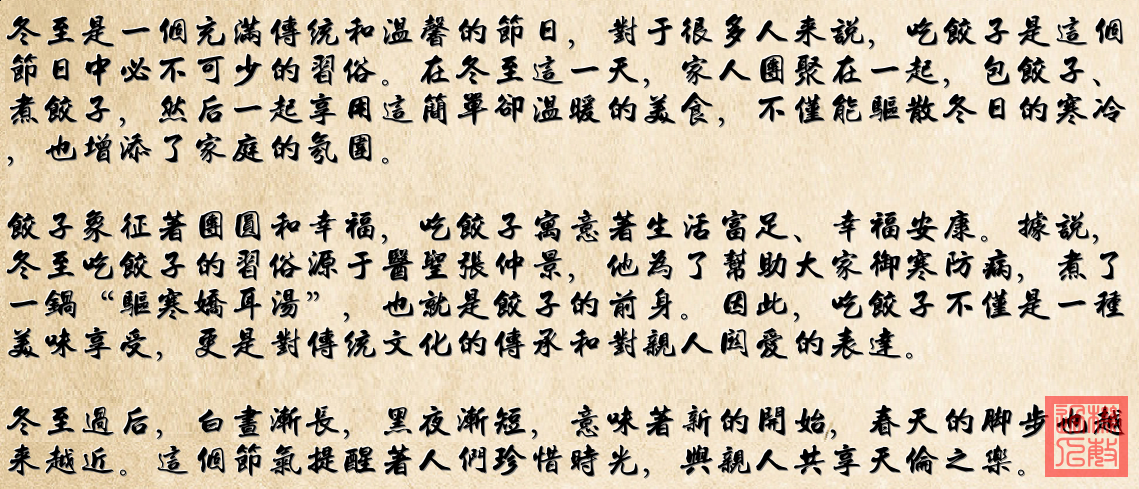 冬至是一個充滿傳統和溫馨的節日，對于很多人來説，吃餃子是這個
節日中必不可少的習俗。在冬至這一天，家人團聚在一起，包餃子、
煮餃子，然后一起享用這簡單卻溫暖的美食，不僅能驅散冬日的寒冷
，也增添了家庭的氛圍。
餃子象征著團圓和幸福，吃餃子寓意著生活富足、幸福安康。據説，
冬至吃餃子的習俗源于醫聖張仲景，他為了幫助大家御寒防病，煮了
一鍋“驅寒嬌耳湯”，也就是餃子的前身。因此，吃餃子不僅是一種
美味享受，更是對傳統文化的傳承和對親人関愛的表達。
冬至過后，白晝漸長，黑夜漸短，意味著新的開始，春天的脚步也越
来越近。這個節氣提醒著人們珍惜時光，與親人共享天倫之樂。